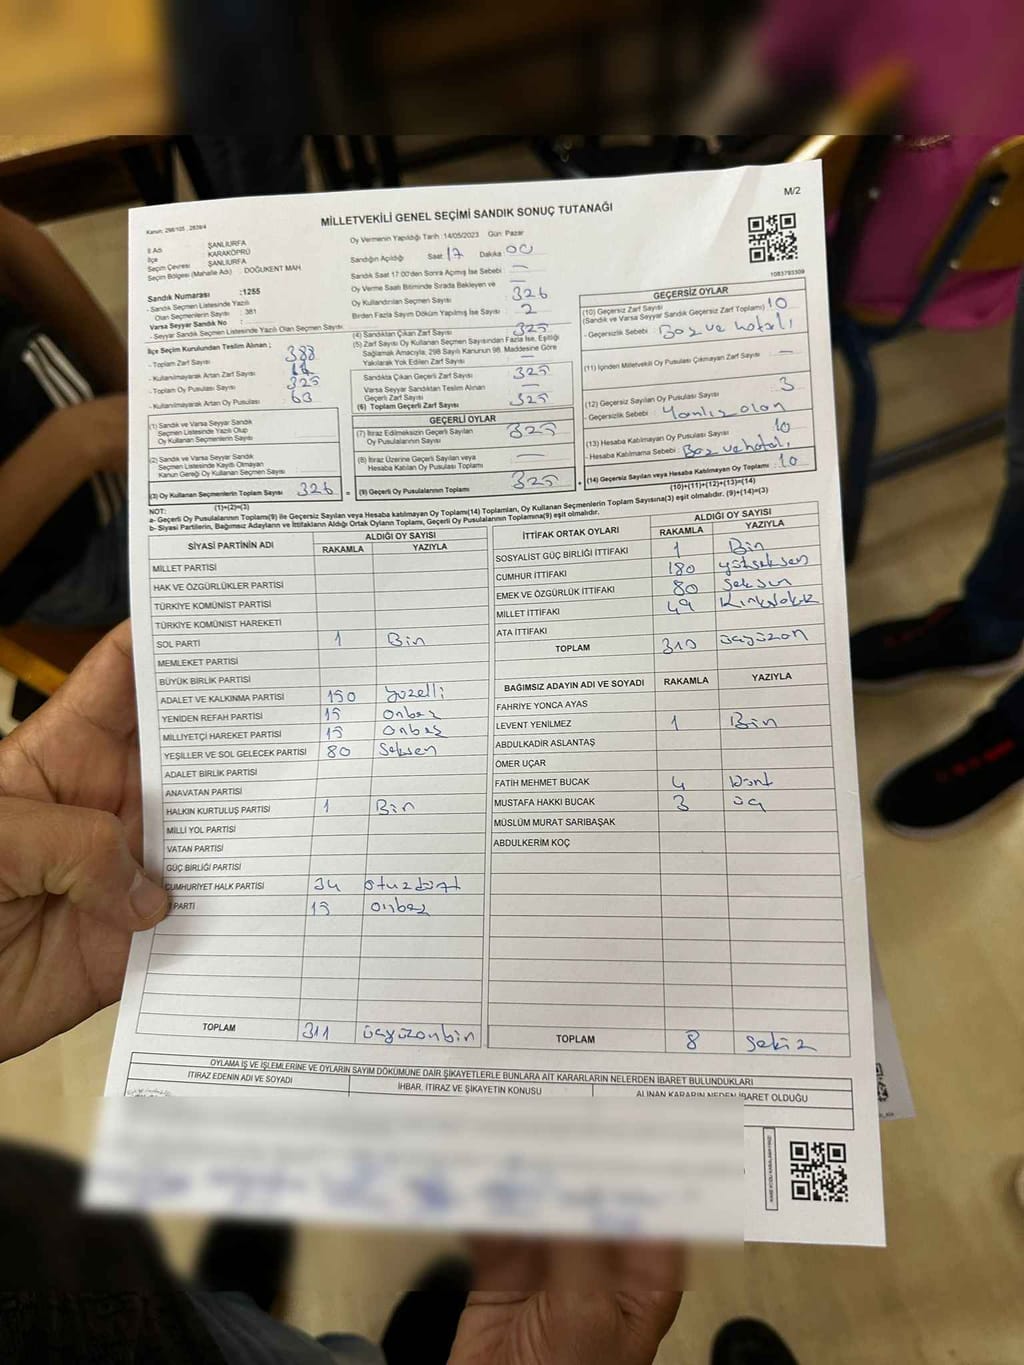 M/2
MİLLETVEKİLİ GENEL SEÇİMİ SANDIK SONUÇ TUTANAĞI
İl Adı ŞANLIURFA
İlçe KARAKÖPRÜ
Seçim Çevresi ŞANLIURFA
Seçim Bölgesi (Mahalle Adı) : DOĞUKENT MAH
Oy Vermenin Yapıldığı Tarih :14/05/2023 Gün: Pazar
Sandığın Açıldığı Saat 17 Dakika 00
Sandık Saat 17:00'den Sonra Açılmış İse Sebebi —
Oy Verme Saati Bitiminde Sırada Bekleyen ve
Oy Kullandırılan Seçmen Sayısı 326
Birden Fazla Sayım Döküm Yapılmış İse Sayısı 2
1083793309
Sandık Numarası :1255
- Sandık Seçmen Listesinde Yazılı
Olan Seçmenlerin Sayısı : 381
Varsa Seyyar Sandık No :
- Seyyar Sandık Seçmen Listesinde Yazılı Olan Seçmen Sayısı
İlçe Seçim Kurulundan Teslim Alınan ;
- Toplam Zarf Sayısı : 388
- Kullanılmayarak Artan Zarf Sayısı :
- Toplam Oy Pusulası Sayısı : 325
- Kullanılmayarak Artan Oy Pusulası : 63
(1) Sandık ve Varsa Seyyar Sandık
Seçmen Listesinde Yazılı Olup
Oy Kullanan Seçmenlerin Sayısı
(2) Sandık ve Varsa Seyyar Sandık
Seçmen Listesinde Kayıtlı Olmayan
Kanun Gereği Oy Kullanan Seçmen Sayısı :
(3) Oy Kullanan Seçmenlerin Toplam Sayısı 326
(1)+(2)=(3)
(4) Sandıktan Çıkan Zarf Sayısı 325
(5) Zarf Sayısı Oy Kullanan Seçmen Sayısından Fazla İse, Eşitliği
Sağlamak Amacıyla, 298 Sayılı Kanunun 98. Maddesine Göre
Yakılarak Yok Edilen Zarf Sayısı —
Sandıkta Çıkan Geçerli Zarf Sayısı 325
Varsa Seyyar Sandıktan Teslim Alınan
Geçerli Zarf Sayısı —
(6) Toplam Geçerli Zarf Sayısı 325
GEÇERLİ OYLAR
(7) İtiraz Edilmeksizin Geçerli Sayılan
Oy Pusulalarının Sayısı 325
(8) İtiraz Üzerine Geçerli Sayılan veya
Hesaba Katılan Oy Pusulası Toplamı —
(9) Geçerli Oy Pusulalarının Toplamı 325
GEÇERSİZ OYLAR
(10) Geçersiz Zarf Sayısı
(Sandık ve Varsa Seyyar Sandık Geçersiz Zarf Toplamı) 10
- Geçersizlik Sebebi : Boz ve hatalı
(11) İçinden Milletvekili Oy Pusulası Çıkmayan Zarf Sayısı —
(12) Geçersiz Sayılan Oy Pusulası Sayısı 3
- Geçersizlik Sebebi : Yanlız olan
(13) Hesaba Katılmayan Oy Pusulası Sayısı 10
- Hesaba Katılmama Sebebi : Boz ve hatalı
(14) Geçersiz Sayılan veya Hesaba Katılmayan Oy Toplamı 10
(10)+(11)+(12)+(13)=(14)
NOT:
a- Geçerli Oy Pusulalarının Toplamı(9) ile Geçersiz Sayılan veya Hesaba katılmayan Oy Toplamı(14) Toplamları, Oy Kullanan Seçmenlerin Toplam Sayısına(3) eşit olmalıdır. (9)+(14)=(3)
b- Siyasi Partilerin, Bağımsız Adayların ve İttifakların Aldığı Ortak Oyların Toplamı, Geçerli Oy Pusulalarının Toplamına(9) eşit olmalıdır.
SİYASİ PARTİNİN ADI ALDIĞI OY SAYISI
RAKAMLA YAZIYLA
MİLLET PARTİSİ
HAK VE ÖZGÜRLÜKLER PARTİSİ
TÜRKİYE KOMÜNİST PARTİSİ
TÜRKİYE KOMÜNİST HAREKETİ
SOL PARTİ 1 Bin
MEMLEKET PARTİSİ
BÜYÜK BİRLİK PARTİSİ
ADALET VE KALKINMA PARTİSİ 150 yüzelli
YENİDEN REFAH PARTİSİ 15 onbeş
MİLLİYETÇİ HAREKET PARTİSİ 15 onbeş
YEŞİLLER VE SOL GELECEK PARTİSİ 80 Seksen
ADALET BİRLİK PARTİSİ
ANAVATAN PARTİSİ
HALKIN KURTULUŞ PARTİSİ 1 Bin
MİLLİ YOL PARTİSİ
VATAN PARTİSİ
GÜÇ BİRLİĞİ PARTİSİ
CUMHURİYET HALK PARTİSİ 34 otuzdört
PARTİ 15 onbeş
TOPLAM 311 üçyüzonbin
İTTİFAK ORTAK OYLARI ALDIĞI OY SAYISI
RAKAMLA YAZIYLA
SOSYALİST GÜÇ BİRLİĞİ İTTİFAKI 1 Bin
CUMHUR İTTİFAKI 180 yükseksen
EMEK VE ÖZGÜRLÜK İTTİFAKI 80 seksen
MİLLET İTTİFAKI 49
ATA İTTİFAKI
TOPLAM 310 üçyüzon
BAĞIMSIZ ADAYIN ADI VE SOYADI RAKAMLA YAZIYLA
FAHRİYE YONCA AYAS
LEVENT YENİLMEZ 1 Bin
ABDULKADİR ASLANTAŞ
ÖMER UÇAR
FATİH MEHMET BUCAK 4 Dört
MUSTAFA HAKKI BUCAK 3 üç
MÜSLÜM MURAT SARIBAŞAK
ABDULKERİM KOÇ
TOPLAM 8 Sekiz
OYLAMA İŞ VE İŞLEMLERİNE VE OYLARIN SAYIM DÖKÜMÜNE DAİR ŞİKAYETLERLE BUNLARA AİT KARARLARIN NELERDEN İBARET BULUNDUKLARI
İTİRAZ EDENİN ADI VE SOYADI İHBAR, İTİRAZ VE ŞİKAYETİN KONUSU ALINAN KARARIN NEDEN İBARET OLDUĞU